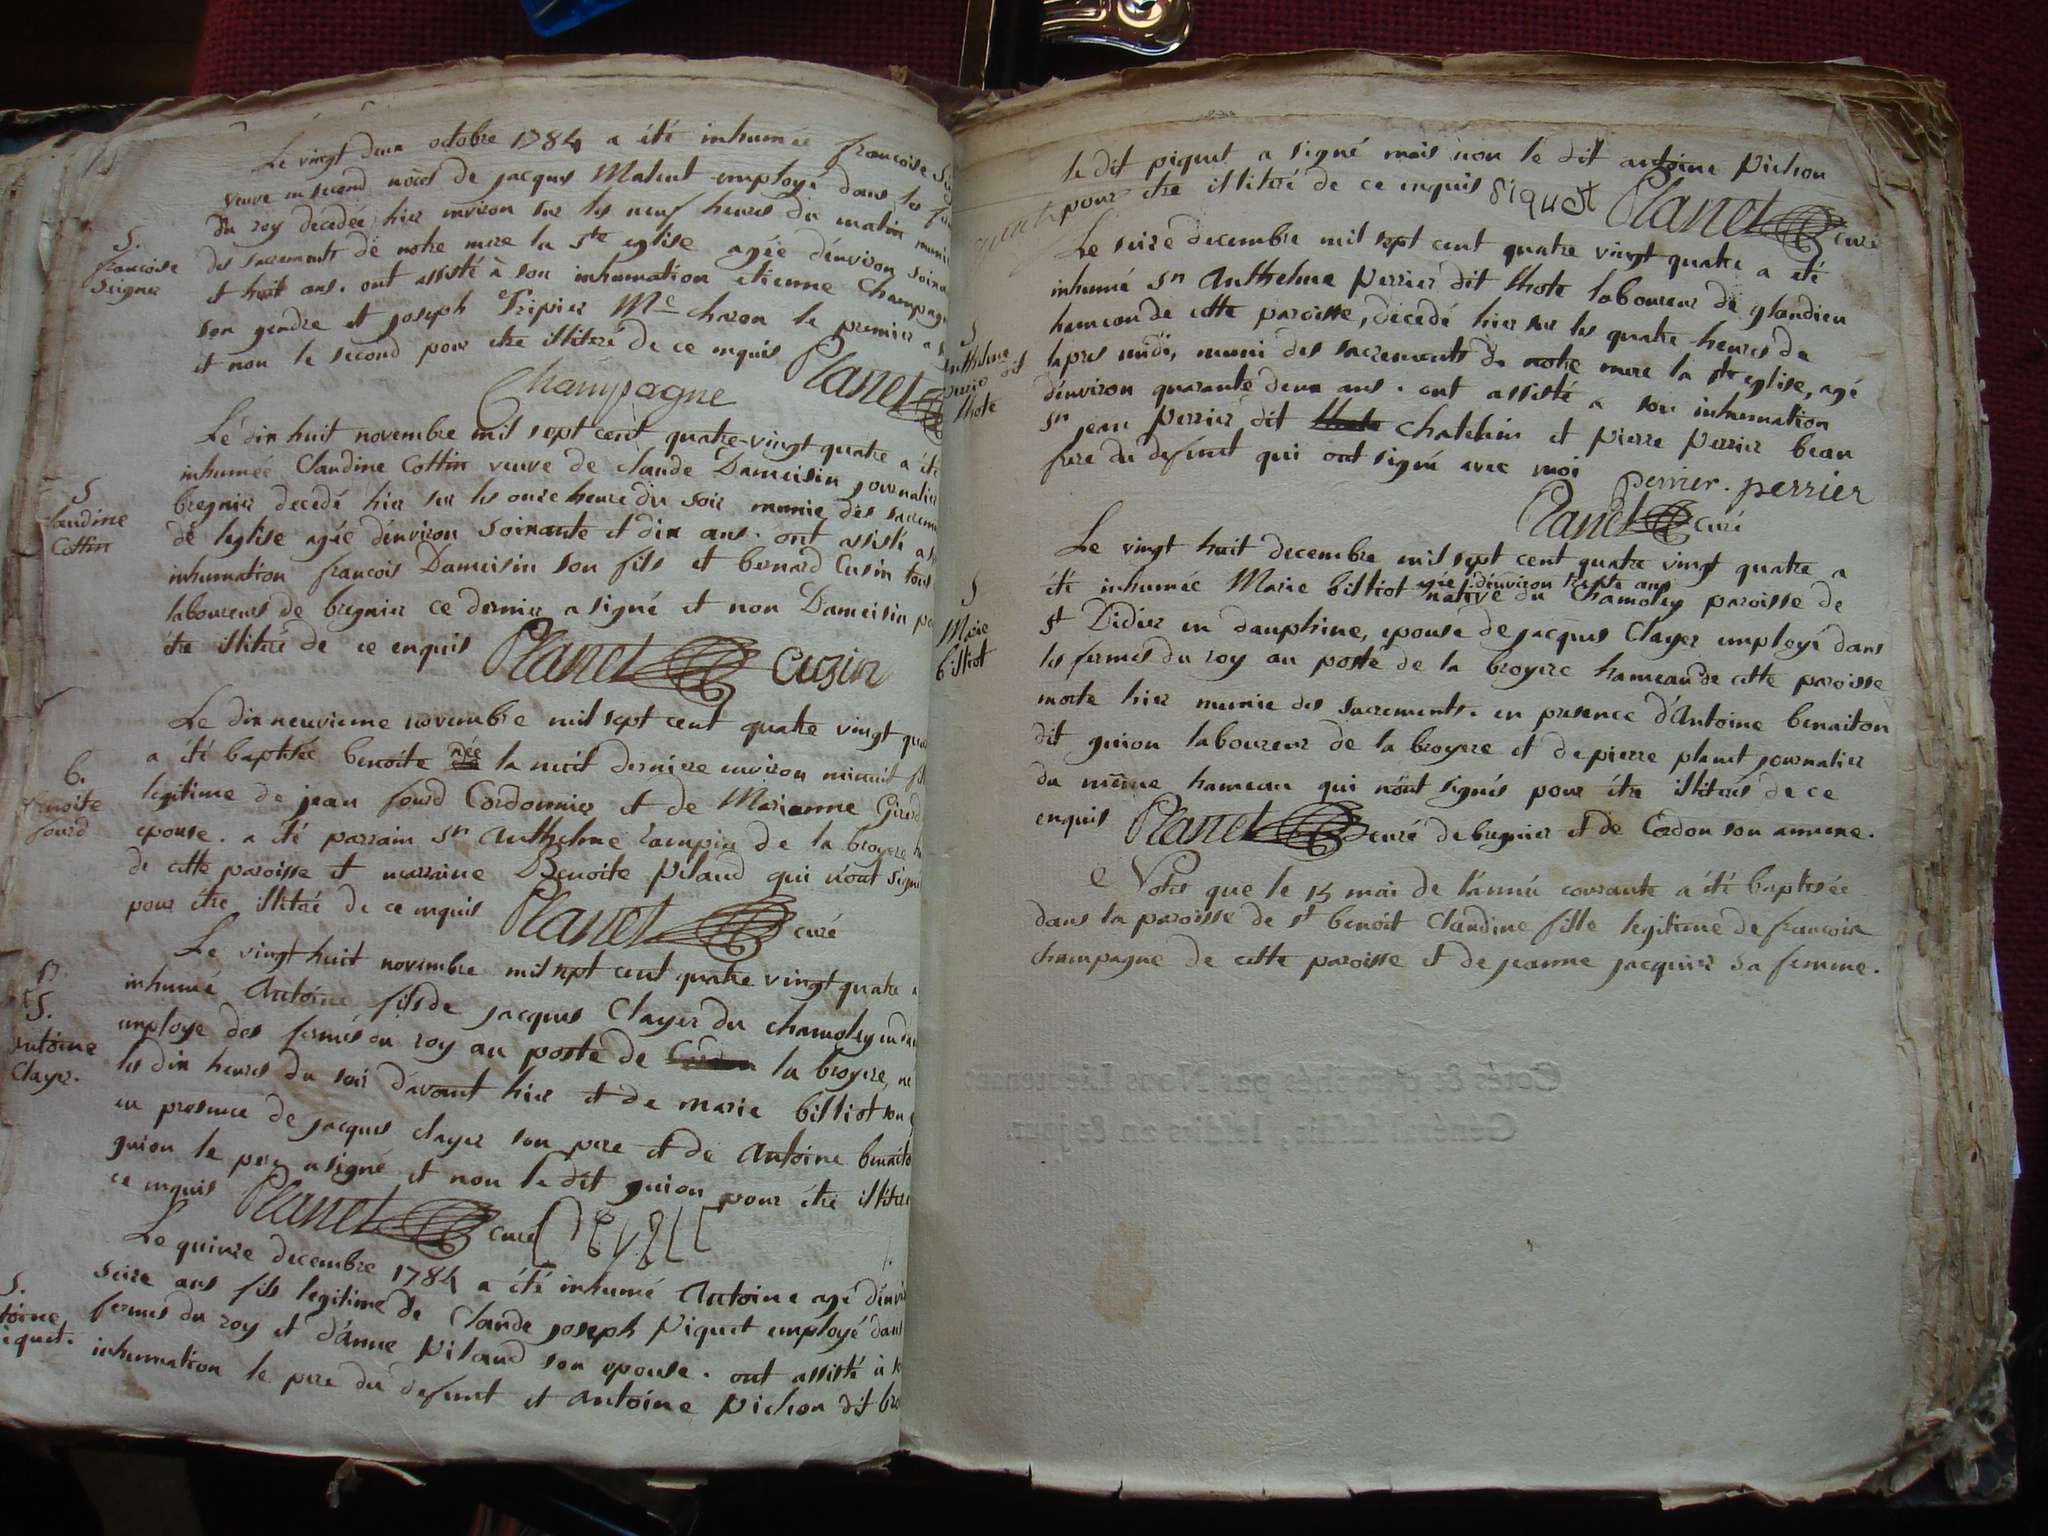 Le vingt deux octobre 1784 a été inhumée francoise
veuve en second noces de jacques Matent employé dans les
du roy decedée hier environ sur les neuf heures du matin munie
S.
francoise
Seignier
des sacrements de notre mere la ste eglise agée d'environ soixante
et huit ans. ont assisté à son inhumation etienne Champagne
son gendre et joseph Tripier Me charon le premier a
et non le second pour etre illiteré de ce enquis Planet
Champagne
Le dix huit novembre mil sept cent quatre-vingt quatre a été
inhumée Claudine Cottin veuve de claude Dameisin journalier
S
laudine
Cottin
bregnier decedé hier sur les onze heure du soir munie des sacrem
de l'eglise agée d'environ soixante et dix ans. ont assisté a
inhumation francois Dameisin son fils et bernard Cusin tous
laboureurs de bregnier ce dernier a signé et non Dameisin po
être illiteré de ce enquis Planet Cuzin
Le dix neuvieme novembre mil sept cent quatre vingt qua
b.
benoite
fourd
a été baptisée benoite née la nuit derniere environ minuit
legitime de jean fourd Cordonnier et de Marianne Girod
epouse. a été parrain sr Anthelme rampin de la broyere
de cette paroisse et marraine Benoite Pilaud qui n'ont signé
pour être illiteré de ce enquis Planet curé
Le vingt huit novembre mil sept cent quatre vingt quatre a
S.
Antoine
Clayer.
inhumé Antoine fils de jacques Clayer du chamoley en
employe des fermes du roy au poste de la broyere, né
les dix heures du soir d'avant hier et de marie billiot son
en presence de jacques clayer son pere et de Antoine benaiton
guion le pere a signé et non le dit guion pour être illiteré
ce enquis Planet curé
Le quinze decembre 1784 a été inhumé Antoine agé d'envir
S.
toine
iquet.
seize ans fils legitime de Claude joseph Piquet employé dans
fermes du roy et d'anne Pilaud son epouse. ont assisté à
inhumation le pere du defunt et antoine Pichon dit bro
le dit piquet a signé mais non le dit antoine Pichon
pour etre illiteré de ce enquis Piquet Planet curé
Le seize decembre mil sept cent quatre vingt quatre a été
inhumé sr Anthelme Perrier dit lhote laboureur de glandieu
S
anthelme
perrier dit
lhote
hameau de cette paroisse, decedé hier sur les quatre heures de
l'apres midi, muni des sacrements de notre mere la ste eglise, agé
d'environ quarante deux ans. ont assisté a son inhumation
sr jean Perrier dit chatelain et Pierre Perrier beau
frere du defunt qui ont signé avec moi perrier. perrier
Planet curé
Le vingt huit decembre mil sept cent quatre vingt quatre a
S
Marie
billiot
été inhumée Marie billiot agée d'environ trente ans native du Chamoley paroisse de
st Didier en dauphine, epouse de jacques Clayer employé dans
les fermes du roy au poste de la broyere hameau de cette paroisse
morte hier munie des sacrements. en presence d'Antoine benaiton
dit guion laboureur de la broyere et de pierre planet journalier
du même hameau qui n'ont signés pour être illiterés de ce
enquis Planet curé de bregnier et de Cordon son annexe.
Notes que le 15 mai de l'année courante a été baptisée
dans la paroisse de st benoit Claudine fille legitime de francois
champagne de cette paroisse et de jeanne jacquier sa femme.